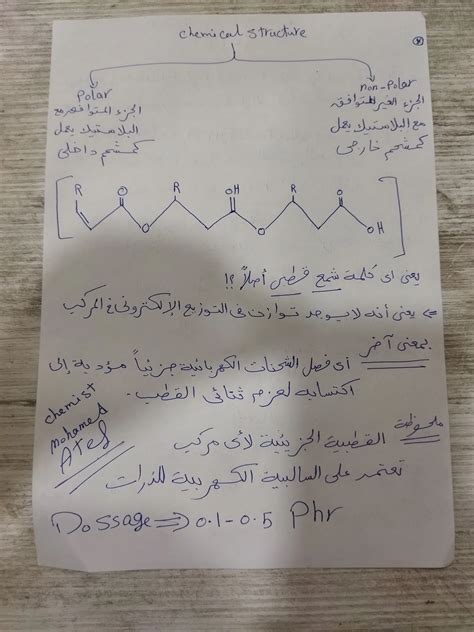 chemical structure
Polar
الجزء المتوافق مع
البلاستيك يعمل
كمشحم داخلي
non-Polar
الجزء الغير متوافق
مع البلاستيك يعمل
كمشحم خارجي
R O R OH R O
O O OH
يعني اى كلمة شمع قطبى أصلاً ؟!
<= يعنى أنه لا يوجد توازن فى التوزيع الإلكترونى فى المركب
بمعنى آخر أى فصل الشحنات الكهربائية جزئياً مؤدية إلى
اكتسابه لعزم ثنائى القطب .
chemist
Mohamed
ATef
ملحوظة القطبية الجزيئية لأى مركب
تعتمد على السالبية الكهربية للذرات
Dossage => 0.1-0.5 Phr